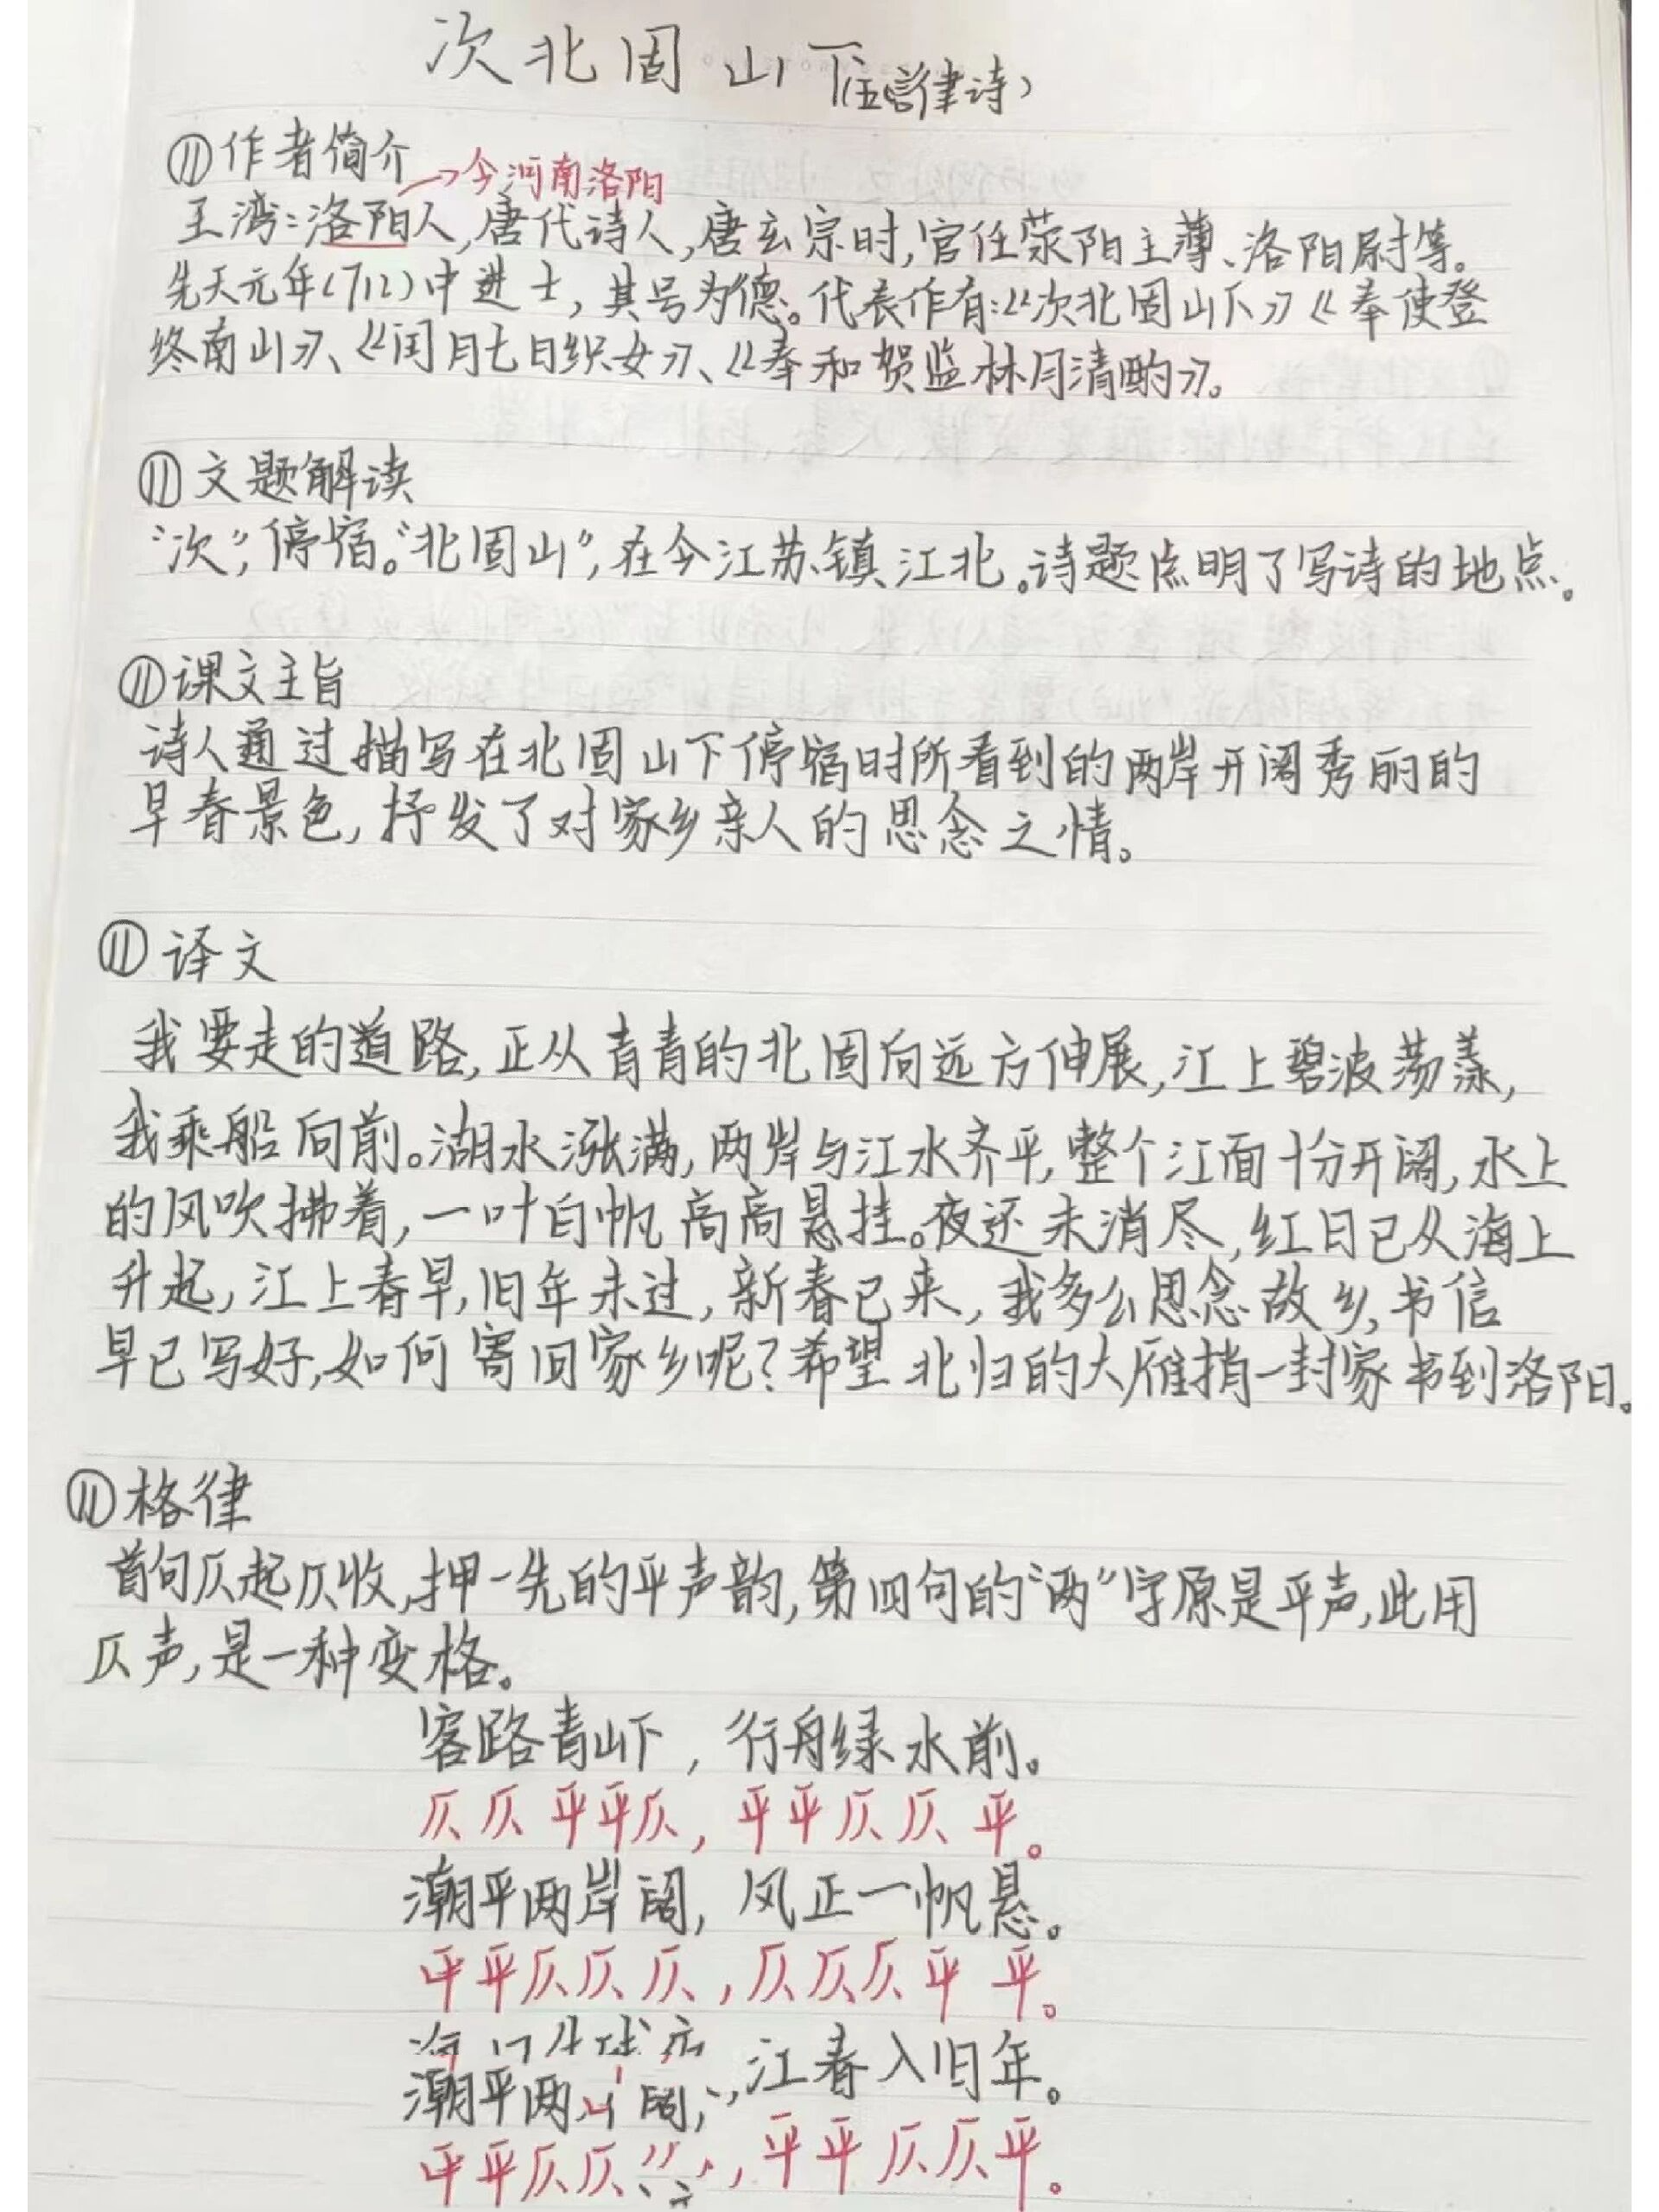 次北固山下(五言律诗)
作者简介
→今河南洛阳
王湾:洛阳人,唐代诗人,唐玄宗时,官任荥阳主薄、洛阳尉等。
先天元年(712)中进士,其号为德。代表作有:《次北固山下》《奉使登
终南山》、《闰月七日织女》、《奉和贺监林月清酌》。
文题解读
“次”,停宿。“北固山”,在今江苏镇江北。诗题点明了写诗的地点。
课文主旨
诗人通过描写在北固山下停宿时所看到的两岸开阔秀丽的
早春景色,抒发了对家乡亲人的思念之情。
译文
我要走的道路,正从青青的北固向远方伸展,江上碧波荡漾,
我乘船向前。湖水涨满,两岸与江水齐平,整个江面十分开阔,水上
的风吹拂着,一叶白帆高高悬挂。夜还未消尽,红日已从海上
升起,江上春早,旧年未过,新春已来,我多么思念故乡,书信
早已写好,如何寄回家乡呢?希望北归的大雁捎一封家书到洛阳。
格律
首句仄起仄收,押一先的平声韵,第四句的“两”字原是平声,此用
仄声,是一种变格。
客路青山下,行舟绿水前。
仄仄平平仄,平平仄仄平。
潮平两岸阔,风正一帆悬。
平平仄仄仄,仄仄仄平平。
江春入旧年。
潮平两 阔,
平平仄仄 ,平平仄仄平。